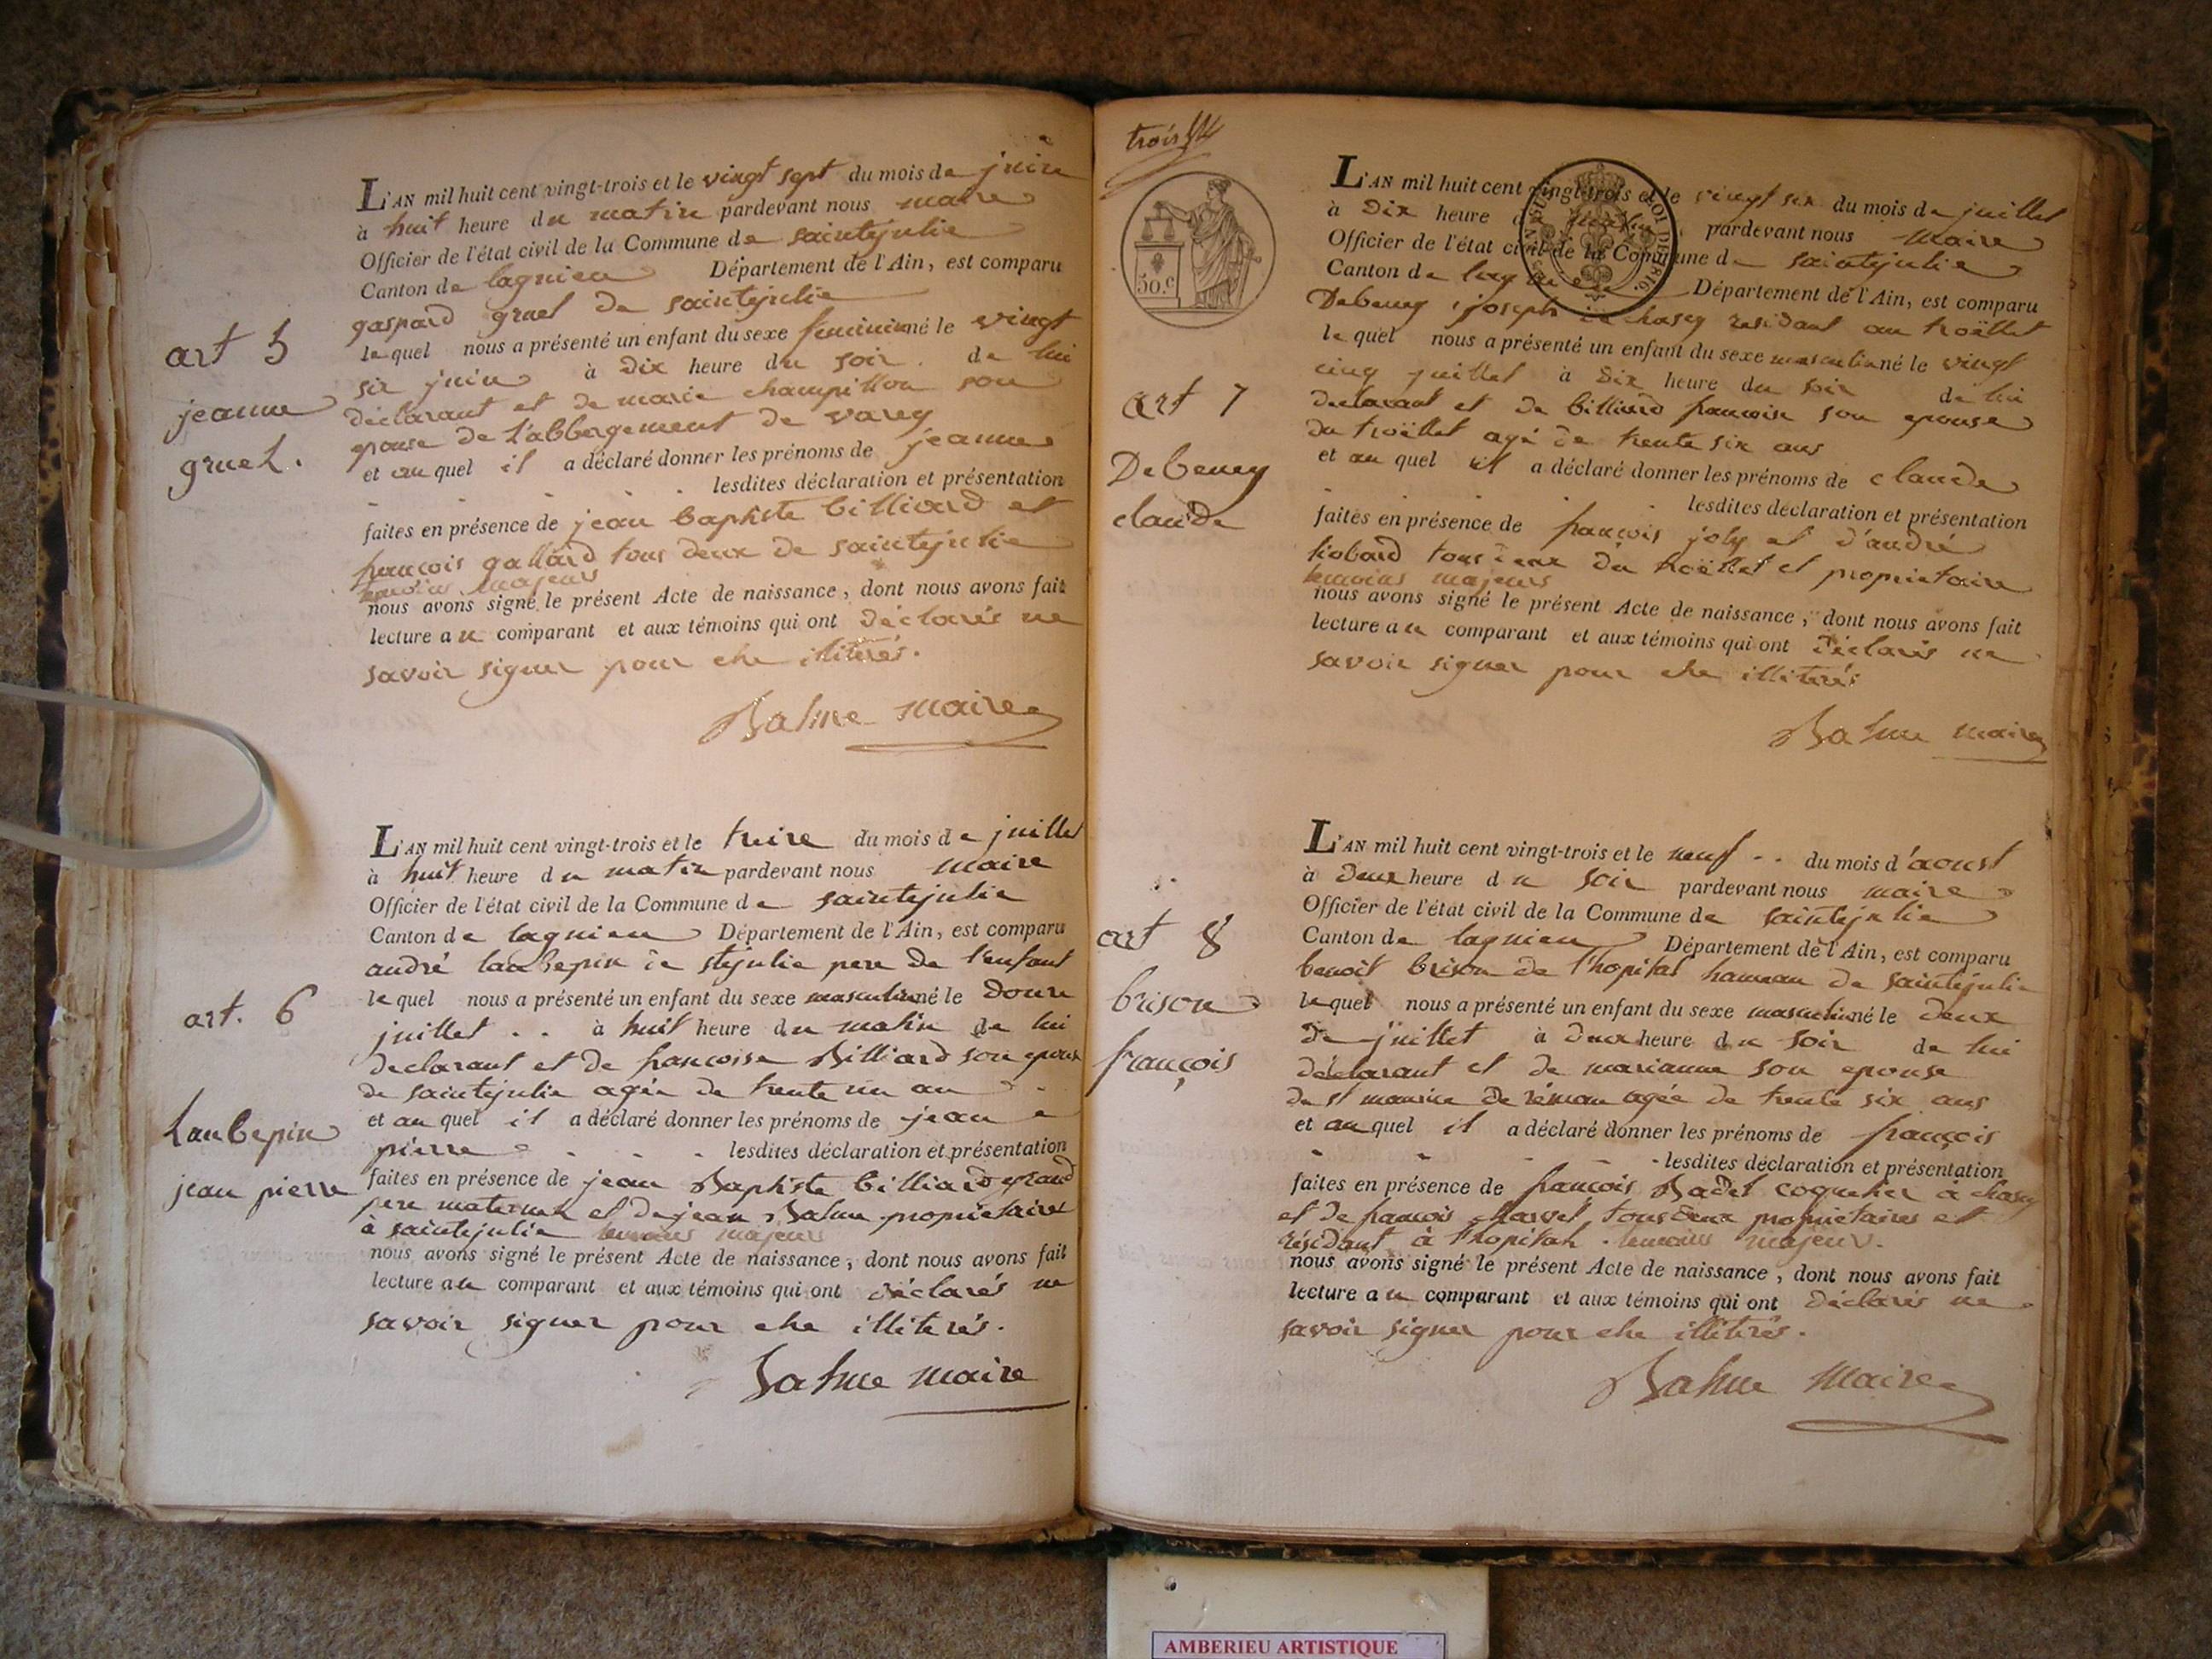 L'AN mil huit cent vingt-trois et le vingt sept du mois de juin
à huit heure du matin pardevant nous maire
Officier de l'état civil de la Commune de saintejulie
Canton de lagnieu Département de l'Ain, est comparu
gaspard gruel de saintejulie
lequel nous a présenté un enfant du sexe feminin né le vingt
six juin à dix heure du soir de lui
déclarant et de marie champillon son
epouse de l'abbergement de varey
et auquel il a déclaré donner les prénoms de jeanne
lesdites déclaration et présentation
faites en présence de jean baptiste billiard et
françois gallard tous deux de saintejulie
temoins majeurs
nous avons signé le présent Acte de naissance, dont nous avons fait
lecture au comparant et aux témoins qui ont déclarés ne
savoir signer pour etre illiterés.
Balme maire
art 5
jeanne
gruel.
L'AN mil huit cent vingt-trois et le treize du mois de juillet
à huit heure du matin pardevant nous maire
Officier de l'état civil de la Commune de saintejulie
Canton de lagnieu Département de l'Ain, est comparu
andré laubepin de stejulie pere de l'enfant
lequel nous a présenté un enfant du sexe masculin né le douze
juillet . . à huit heure du matin de lui
declarant et de francoise Billiard son epouse
de saintejulie agée de trente un an
et auquel il a déclaré donner les prénoms de jean
pierre lesdites déclaration et présentation
faites en présence de jean Baptiste billiard grand
pere maternel et de jean Balme propriétaires
à saintejulie temoins majeurs
nous avons signé le présent Acte de naissance, dont nous avons fait
lecture au comparant et aux témoins qui ont déclarés ne
savoir signer pour etre illiterés.
Balme maire
art. 6
Laubepin
jean pierre
trois
50.c
L'AN mil huit cent vingt-trois et le vingt six du mois de juillet
à Dix heure du matin pardevant nous maire
Officier de l'état civil de la Commune de saintejulie
Canton de lagnieu Département de l'Ain, est comparu
Debeney joseph de chasey residant au troëllet
lequel nous a présenté un enfant du sexe masculin né le vingt
cinq juillet à dix heure du soir de lui
declarant et de billiard francoise son epouse
du troëllet agé de trente six ans
et auquel il a déclaré donner les prénoms de claude
lesdites déclaration et présentation
faites en présence de françois joly et d'andré
liobard tous deux du troëllet et proprietaire
temoins majeurs
nous avons signé le présent Acte de naissance, dont nous avons fait
lecture au comparant et aux témoins qui ont déclarés ne
savoir signer pour etre illiterés
Balme maire
art 7
Debeney
claude
L'AN mil huit cent vingt-trois et le neuf . . du mois d'aoust
à deux heure du soir pardevant nous maire
Officier de l'état civil de la Commune de saintejulie
Canton de lagnieu Département de l'Ain, est comparu
benoit brison de l'hopital hameau de saintejulie
lequel nous a présenté un enfant du sexe masculin né le deux
de juillet à deux heure du soir de lui
déclarant et de marianne son epouse
de st maurice de rémou agée de trente six ans
et auquel il a déclaré donner les prénoms de françois
lesdites déclaration et présentation
faites en présence de françois Badel coquetier à chasey
et de francois charvet tous deux proprietaires et
résidant à l'hopital. temoins majeur.
nous avons signé le présent Acte de naissance, dont nous avons fait
lecture au comparant et aux témoins qui ont déclarés ne
savoir signer pour etre illiterés.
Balme maire
art 8
brison
françois
AMBERIEU ARTISTIQUE